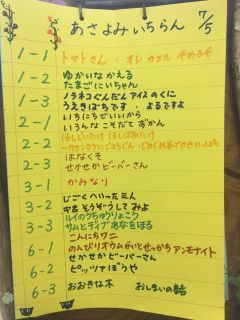 あさよみいちらん 7/5
1-1 トマトさん・オレ カエル やめるや
1-2 ゆかいな かえる
たまごにいちゃん
1-3 ノラネコぐんだん アイスのくに
うえきばちです・よるですよ
2-1 いちにちでいいから
いろんな こそだて ずかん
2-2 ほしじいたけ ほしばあたけ
2-3 はなくそ
せかせかビーバーさん
3-1 かみなり
3-2 じごくへいった三人
中をそうぞうしてみよ
3-3 ルイのうちゅうりょこう
サムとデイブ あなをほる
こんにちワニ
6-1 のんびりオウムがいとせっかちアンモナイト
せかせかビーバーさん
6-2 ピッツァぼうや
6-3 おおきな木 おしまいの話